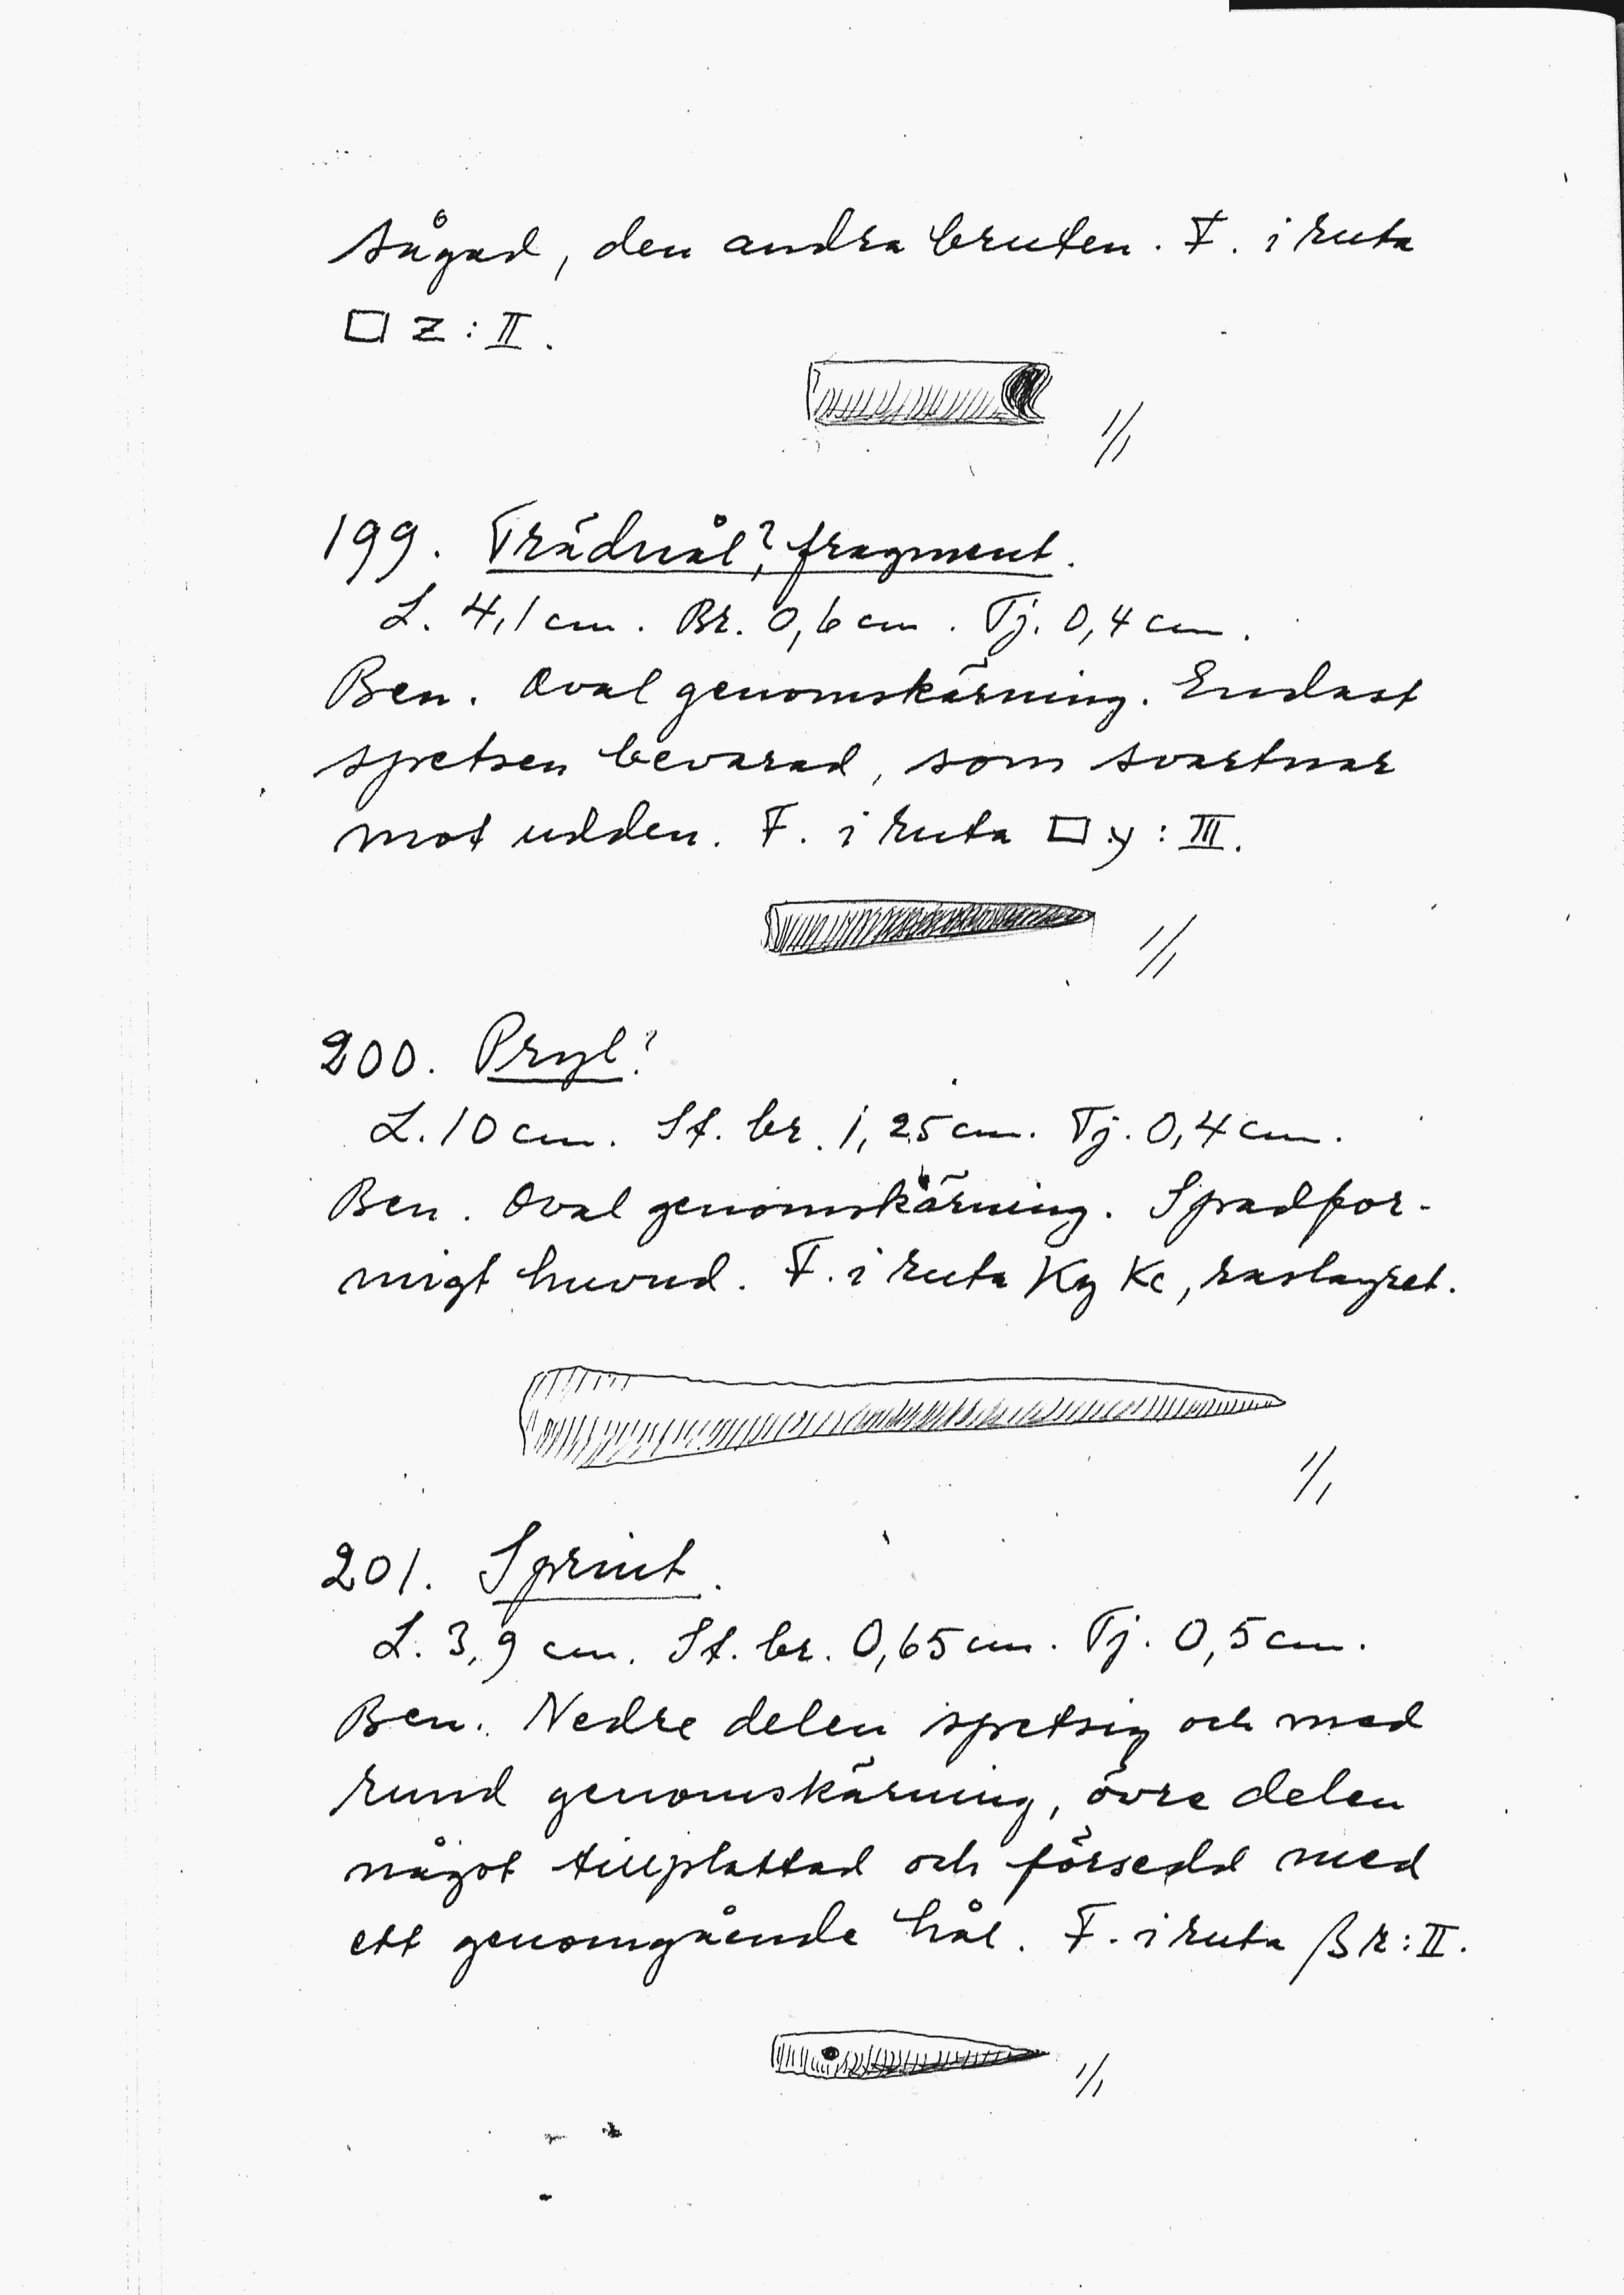 sågad, den andra bruten. F. i ruta
□ z : II.
1/1
199. Trådnål?, fragment.
L. 4,1 cm. Br. 0,6 cm. Tj. 0,4 cm.
Ben. Oval genomskärning. Endast
spetsen bevarad, som svartnar
mot udden. F. i ruta □ y : III.
1/1
200. Pryl?
L. 10 cm. St. br. 1,25 cm. Tj. 0,4 cm.
Ben. Oval genomskärning. Spadfor-
migt huvud. F. i ruta Kz Kc, raslagret.
1/1
201. Sprint.
L. 3,9 cm. St. br. 0,65 cm. Tj. 0,5 cm.
Ben. Nedre delen spetsig och med
rund genomskärning, övre delen
något tillplattad och försedd med
ett genomgående hål. F. i ruta β r : II.
1/1